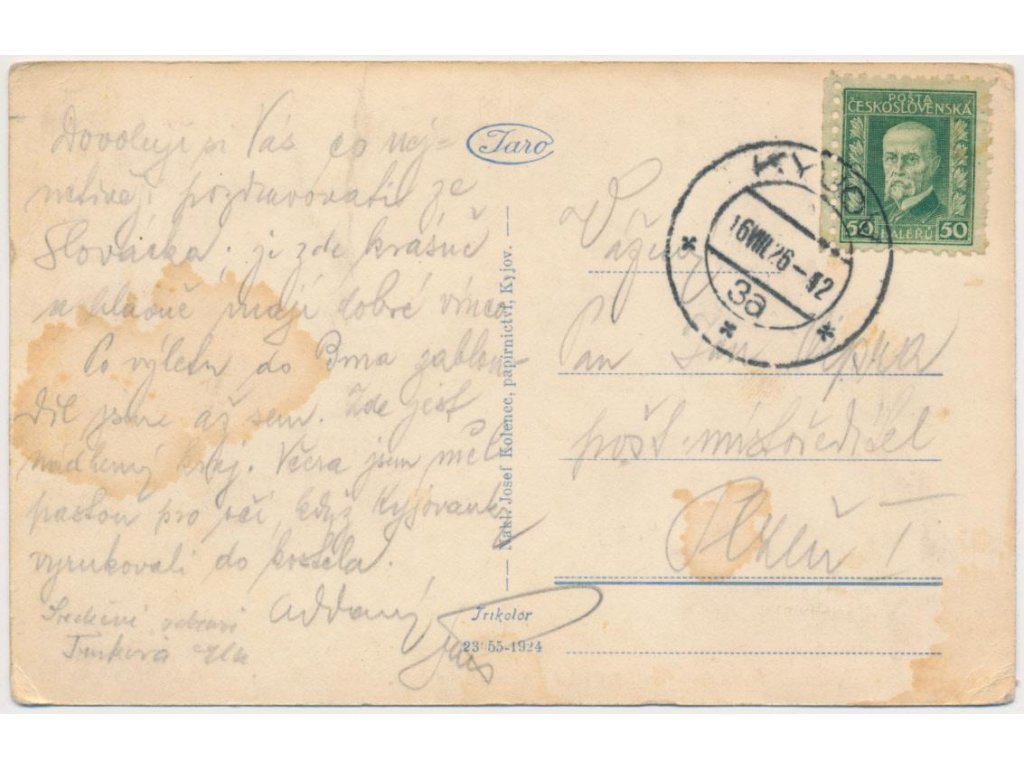 Dovoluji si Vás co nej-
pozdravovati ze
Slovácka. je zde krásně
a hlavně mají dobré víno
Po výletu do Brna zablou-
dil jsme až sem. Zde jest
nádherný kraj. Včera jsem měl
pastvu pro oči, když Kyjované
vyrukovali do kostela.
oddaný
Srdečné
Taro
Nakl. Josef Kolenec, papírnictví, Kyjov.
Trikolor
23 55-1924
POŠTA
ČESKOSLOVENSKÁ
50 HALÉŘŮ 50
KYJOV
16.VIII.26-12
3a
Vážený
Pan Jan
pošt.
Plzeň I